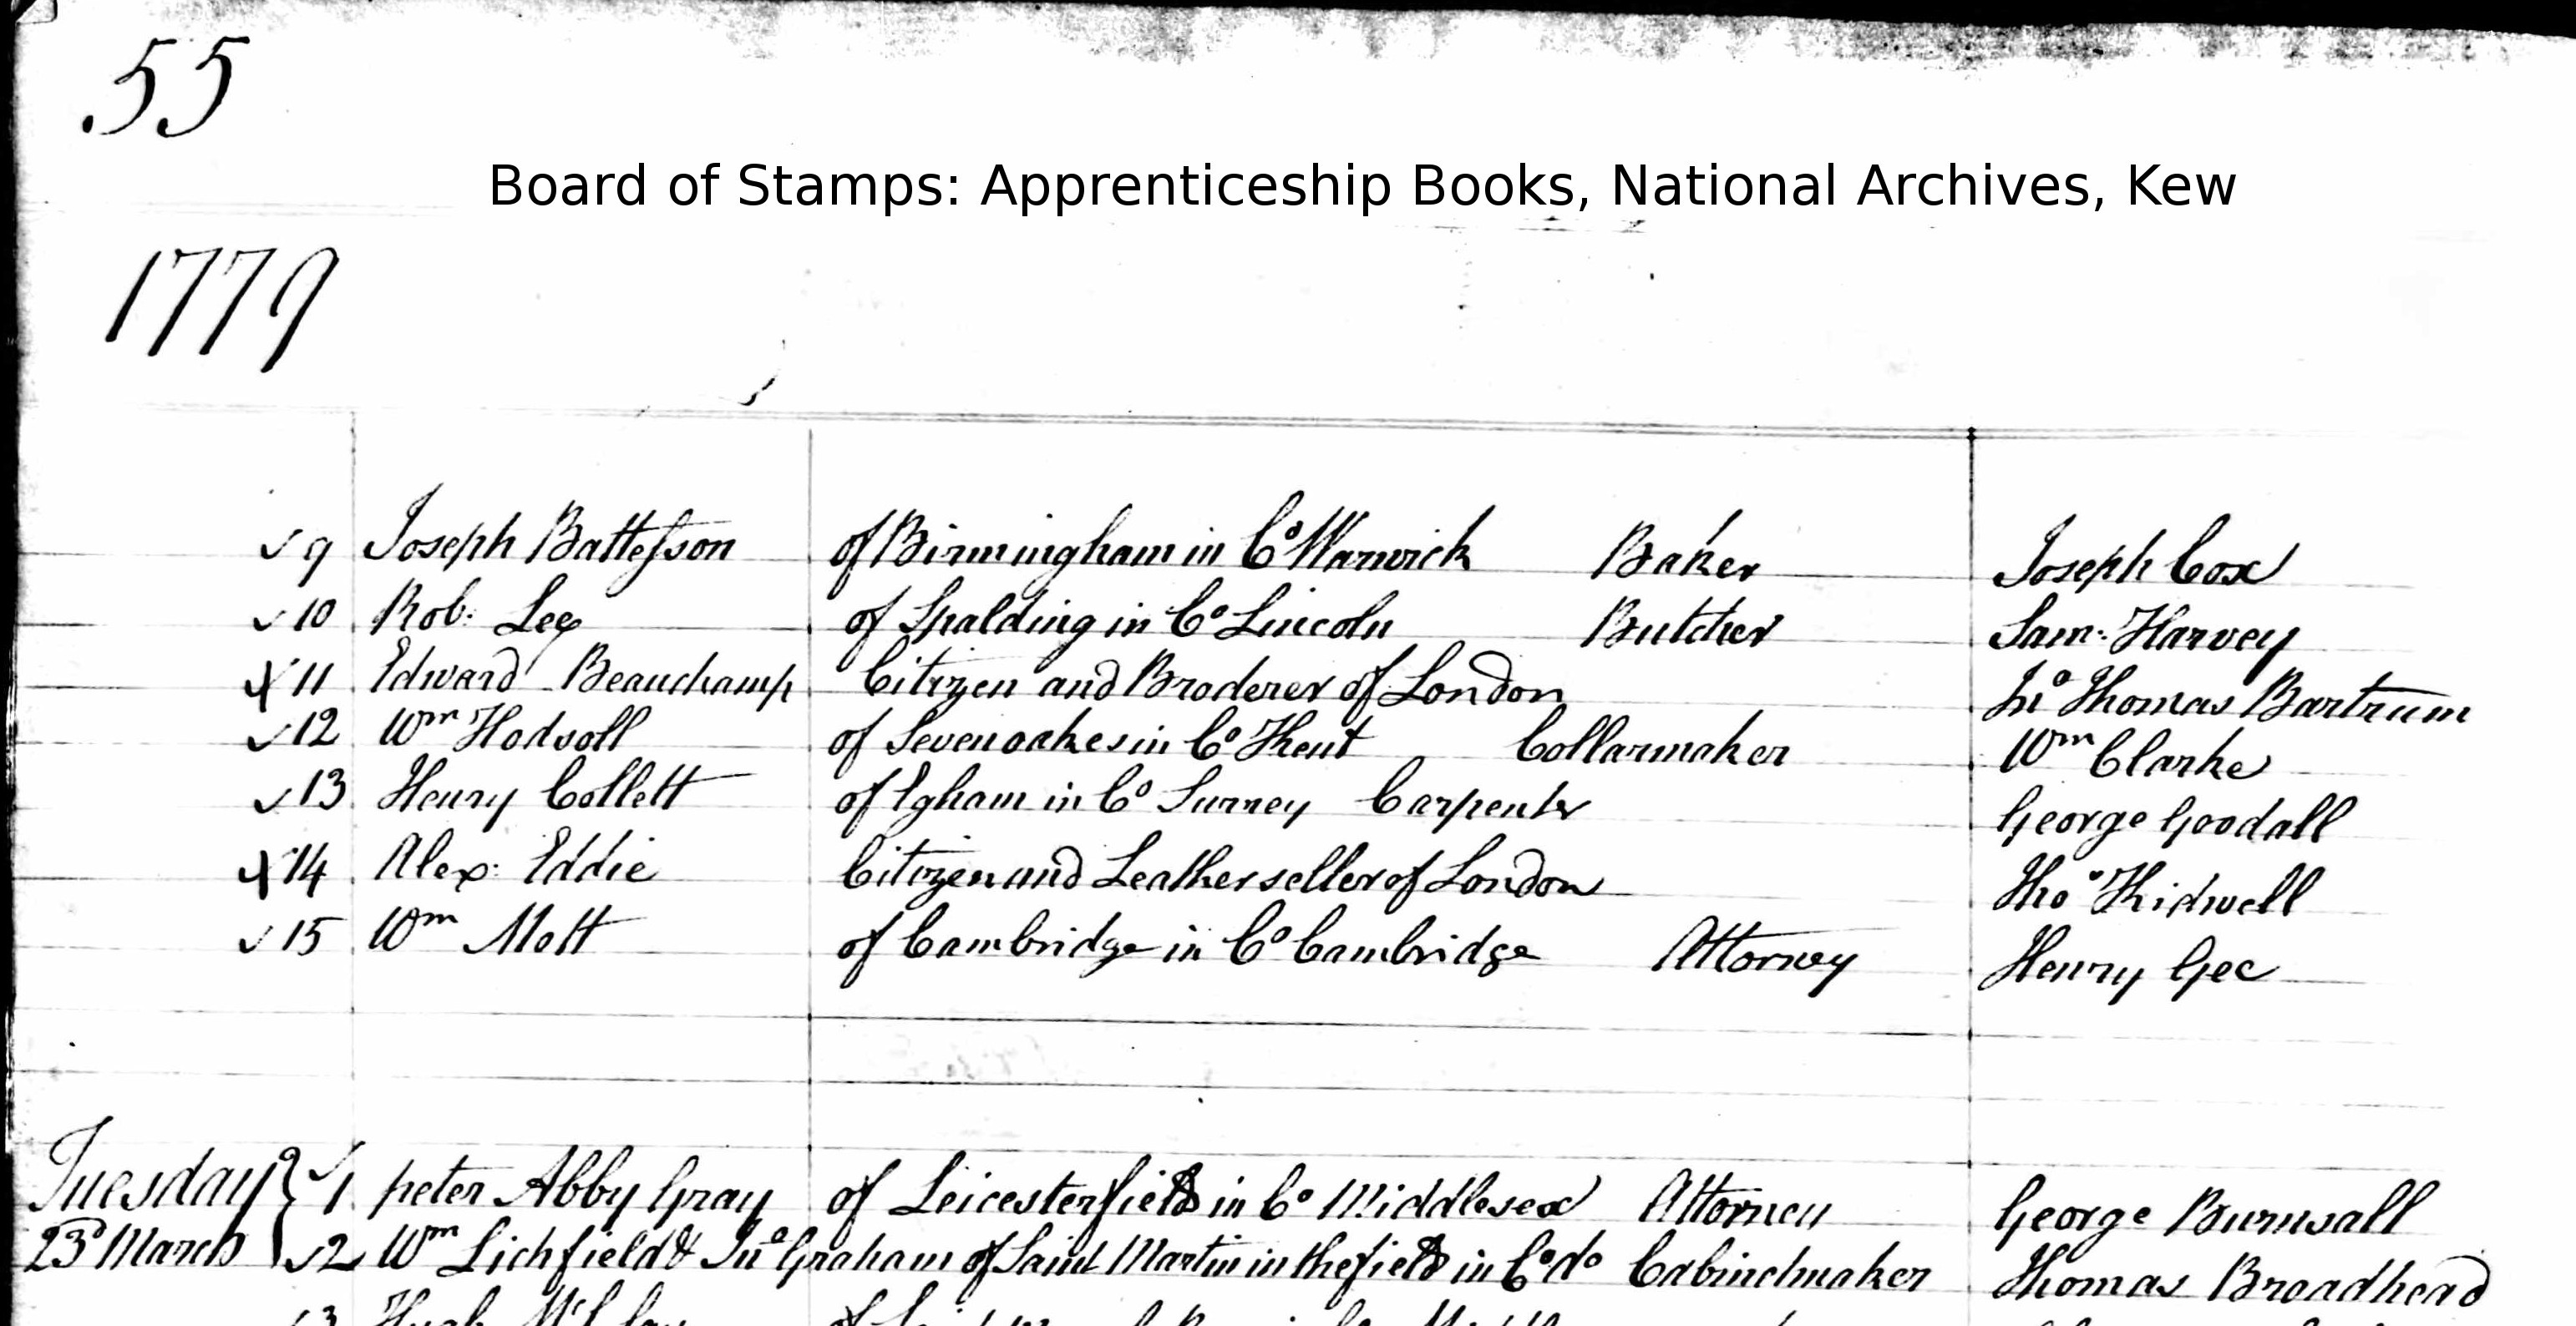 55
Board of Stamps: Apprenticeship Books, National Archives, Kew
1779
9 Joseph Battesson of Birmingham in Co Warwick Baker Joseph Cox
10 Rob: Lee of Spalding in Co Lincoln Butcher Sam: Harvey
11 Edward Beauchamp Citizen and Broderer of London Jno Thomas Bartrum
12 Wm Hodsoll of Sevenoakes in Co Kent Collarmaker Wm Clarke
13 Henry Collett of Egham in Co Surrey Carpenter George Goodall
14 Alex: Eddie Citizen and Leatherseller of London Tho Kidwell
15 Wm Mott of Cambridge in Co Cambridge Attorney Henry Gee
Tuesday 1 peter Abby Gray of Leicesterfields in Co Middlesex Attorney George Burnsall
23d March 2 Wm Lichfield & Jno Graham of Saint Martin in the fields in Co do Cabinetmaker Thomas Broadhead
3 Hugh